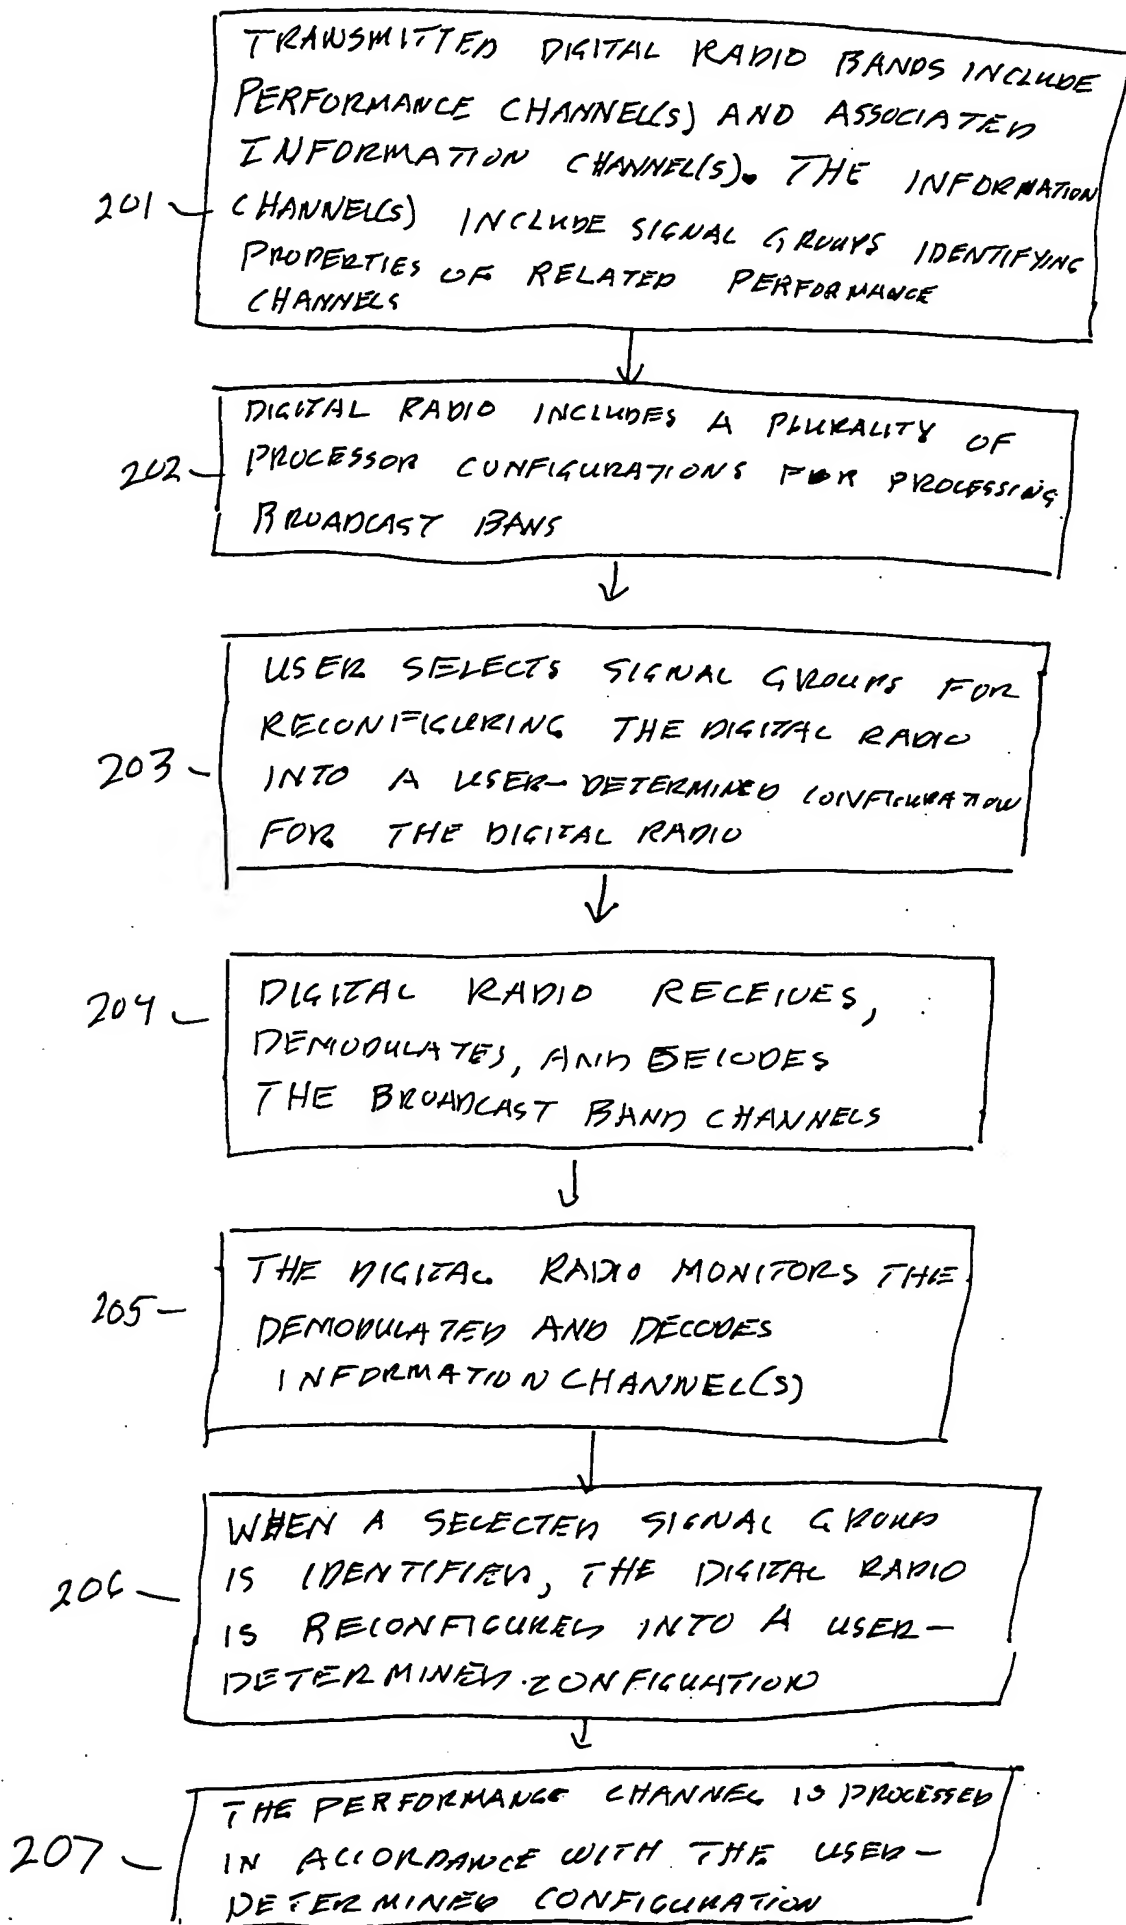 TRANSMITTED DIGITAL RADIO BANDS INCLUDE
PERFORMANCE CHANNEL(S) AND ASSOCIATED
INFORMATION CHANNEL(S). THE INFORMATION
201 CHANNEL(S) INCLUDE SIGNAL GROUPS IDENTIFYING
PROPERTIES OF RELATED PERFORMANCE
CHANNELS
DIGITAL RADIO INCLUDES A PLURALITY OF
202 PROCESSOR CONFIGURATIONS FOR PROCESSING
BROADCAST BANS
USER SELECTS SIGNAL GROUPS FOR
RECONIFIGURING THE DIGITAL RADIO
203 INTO A USER-DETERMINED CONFIGURATION
FOR THE DIGITAL RADIO
204 DIGITAL RADIO RECEIVES,
DEMODULATES, AND DECODES
THE BROADCAST BAND CHANNELS
THE DIGITAL RADIO MONITORS THE
205 DEMODULATED AND DECODES
INFORMATION CHANNEL(S)
WHEN A SELECTED SIGNAL GROUP
206 IS IDENTIFIED, THE DIGITAL RADIO
IS RECONFIGURED INTO A USER-
DETERMINED CONFIGUATION
THE PERFORMANCE CHANNEL IS PROCESSED
207 IN ACCORDANCE WITH THE USER-
DETERMINED CONFIGURATION